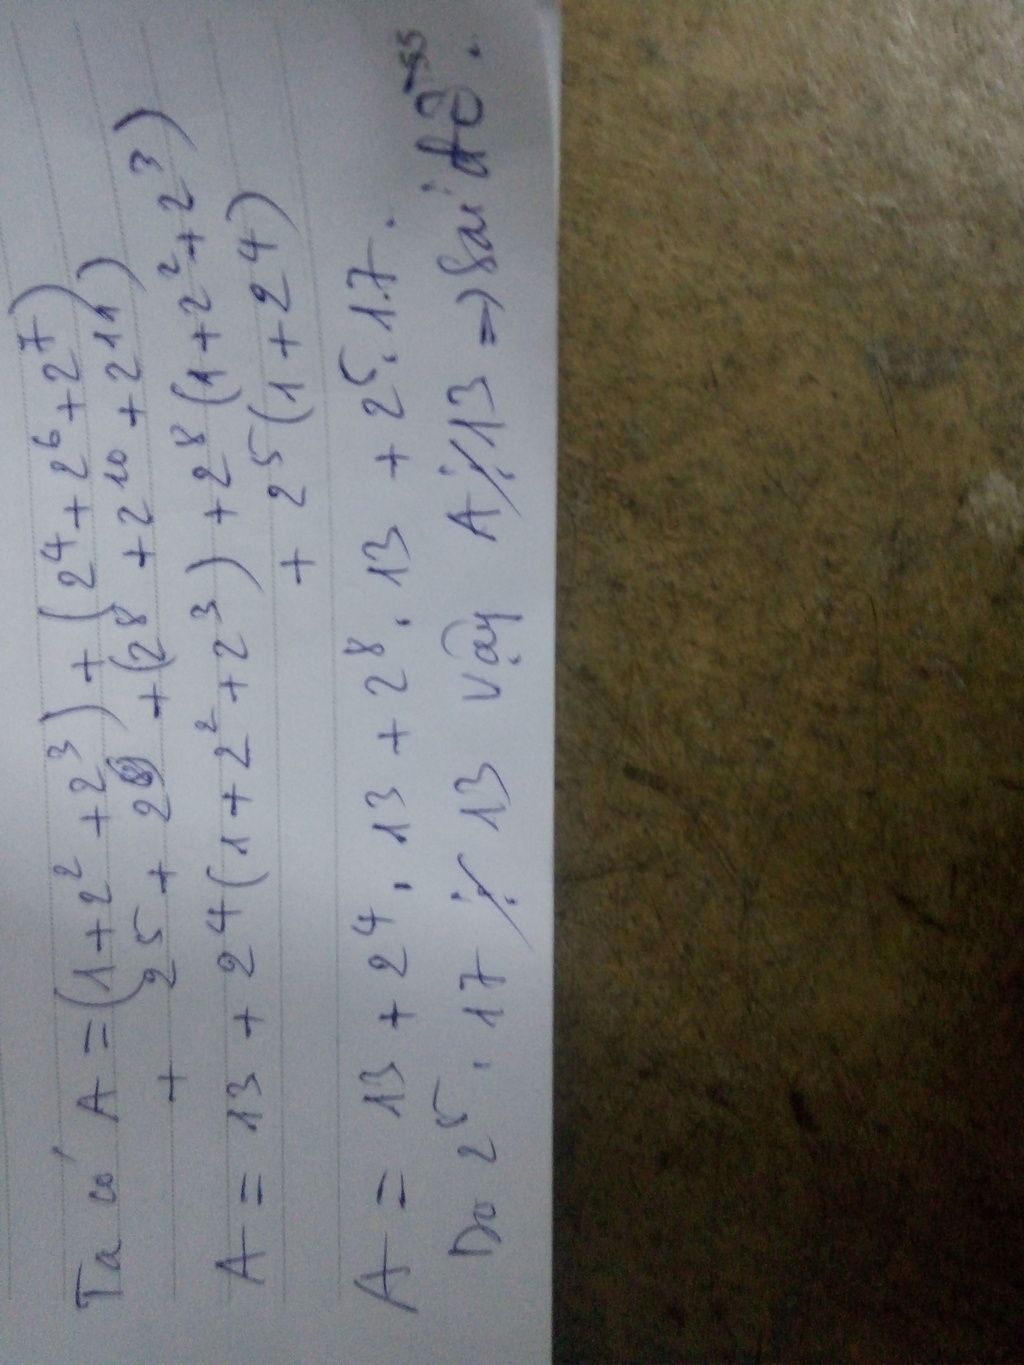 Ta có A = (1 + 2² + 2³) + (2⁴ + 2⁶ + 2⁷)
+ 2⁵ + 2⁹ + (2⁸ + 2¹⁰ + 2¹¹)
A = 13 + 2⁴(1 + 2² + 2³) + 2⁸(1 + 2² + 2³)
+ 2⁵(1 + 2⁴)
A = 13 + 2⁴ . 13 + 2⁸ . 13 + 2⁵ . 17.
Do 2⁵ . 17 ⋮̸ 13 vậy A ⋮̸ 13 => Sai đề.